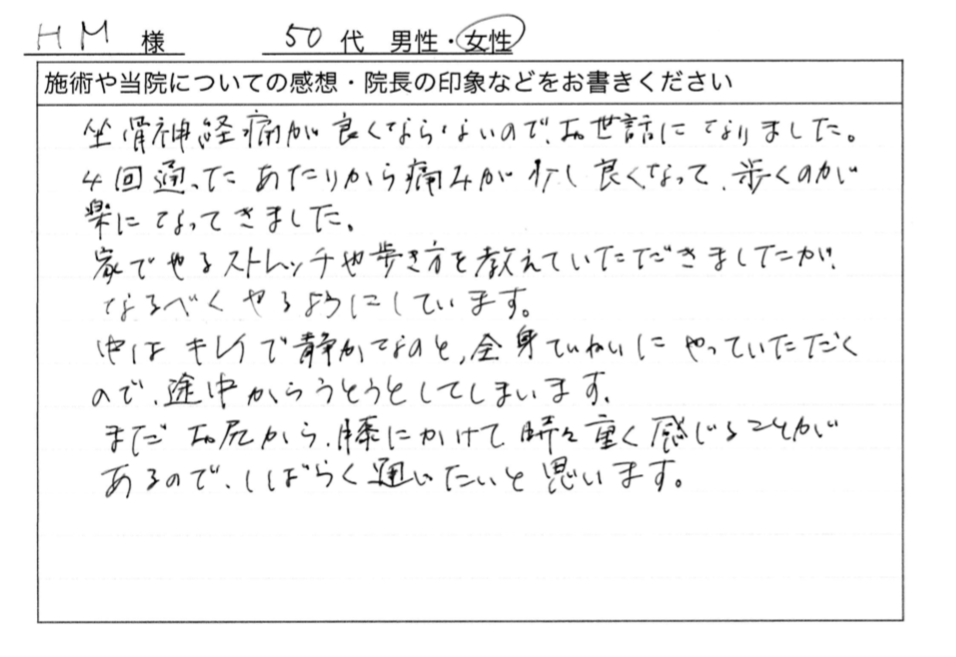 HM 様 50代 男性・女性
施術や当院についての感想・院長の印象などをお書きください
坐骨神経痛が良くならないので、お世話になりました。
4回通ったあたりから痛みが少し良くなって、歩くのが
楽になってきました。
家でやるストレッチや歩き方を教えていただきましたが、
なるべくやるようにしています。
中はキレイで静かなのと、全身ていねいにやっていただく
ので、途中からうとうとしてしまいます。
まだお尻から、膝にかけて時々重く感じることが
あるので、しばらく通いたいと思います。